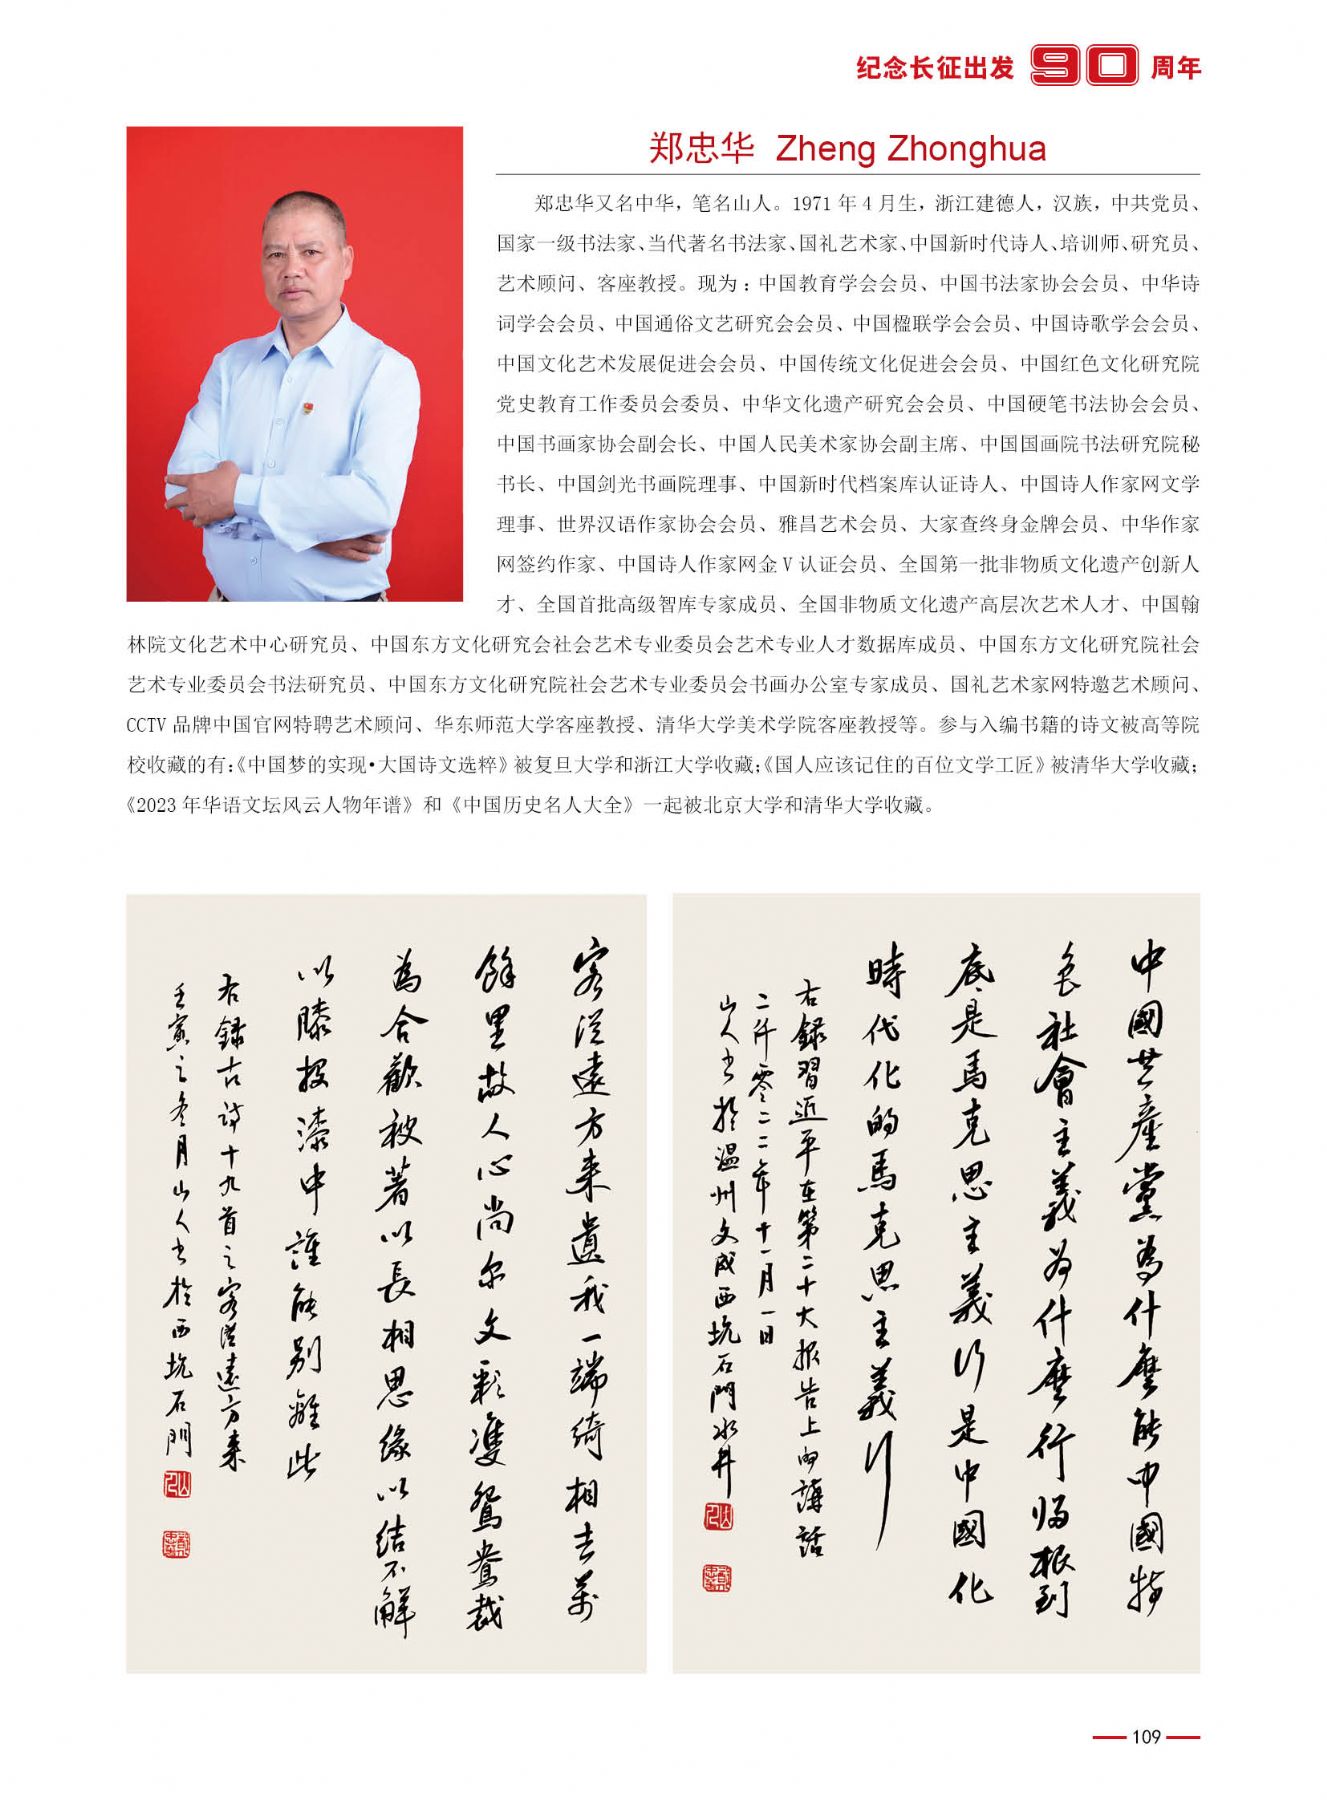 纪念长征出发 90 周年
郑忠华 Zheng Zhonghua
郑忠华又名中华，笔名山人。1971 年 4 月生，浙江建德人，汉族，中共党员、
国家一级书法家、当代著名书法家、国礼艺术家、中国新时代诗人、培训师、研究员、
艺术顾问、客座教授。现为：中国教育学会会员、中国书法家协会会员、中华诗
词学会会员、中国通俗文艺研究会会员、中国楹联学会会员、中国诗歌学会会员、
中国文化艺术发展促进会会员、中国传统文化促进会会员、中国红色文化研究院
党史教育工作委员会委员、中华文化遗产研究会会员、中国硬笔书法协会会员、
中国书画家协会副会长、中国人民美术家协会副主席、中国国画院书法研究院秘
书长、中国剑光书画院理事、中国新时代档案库认证诗人、中国诗人作家网文学
理事、世界汉语作家协会会员、雅昌艺术会员、大家查终身金牌会员、中华作家
网签约作家、中国诗人作家网金 V 认证会员、全国第一批非物质文化遗产创新人
才、全国首批高级智库专家成员、全国非物质文化遗产高层次艺术人才、中国翰
林院文化艺术中心研究员、中国东方文化研究会社会艺术专业委员会艺术专业人才数据库成员、中国东方文化研究院社会
艺术专业委员会书法研究员、中国东方文化研究院社会艺术专业委员会书画办公室专家成员、国礼艺术家网特邀艺术顾问、
CCTV 品牌中国官网特聘艺术顾问、华东师范大学客座教授、清华大学美术学院客座教授等。参与入编书籍的诗文被高等院
校收藏的有：《中国梦的实现•大国诗文选粹》被复旦大学和浙江大学收藏；《国人应该记住的百位文学工匠》被清华大学收藏；
《2023 年华语文坛风云人物年谱》和《中国历史名人大全》一起被北京大学和清华大学收藏。
客從遠方来遺我一端綺相去萬
餘里故人心尚尔文彩雙鴛鴦裁
為合歡被著以長相思緣以结不解
以膝投漆中誰能别離此
右録古詩十九首之客從遠方来
壬寅之冬月山人書於西坑石門
中國共產黨為什麼能中國特
色社會主義为什麼行归根到
底是馬克思主義行是中國化
時代化的馬克思主義行
右録習近平在第二十大报告上的講話
二仟零二二年十一月一日
山人書於温州文成西坑石門水井
109